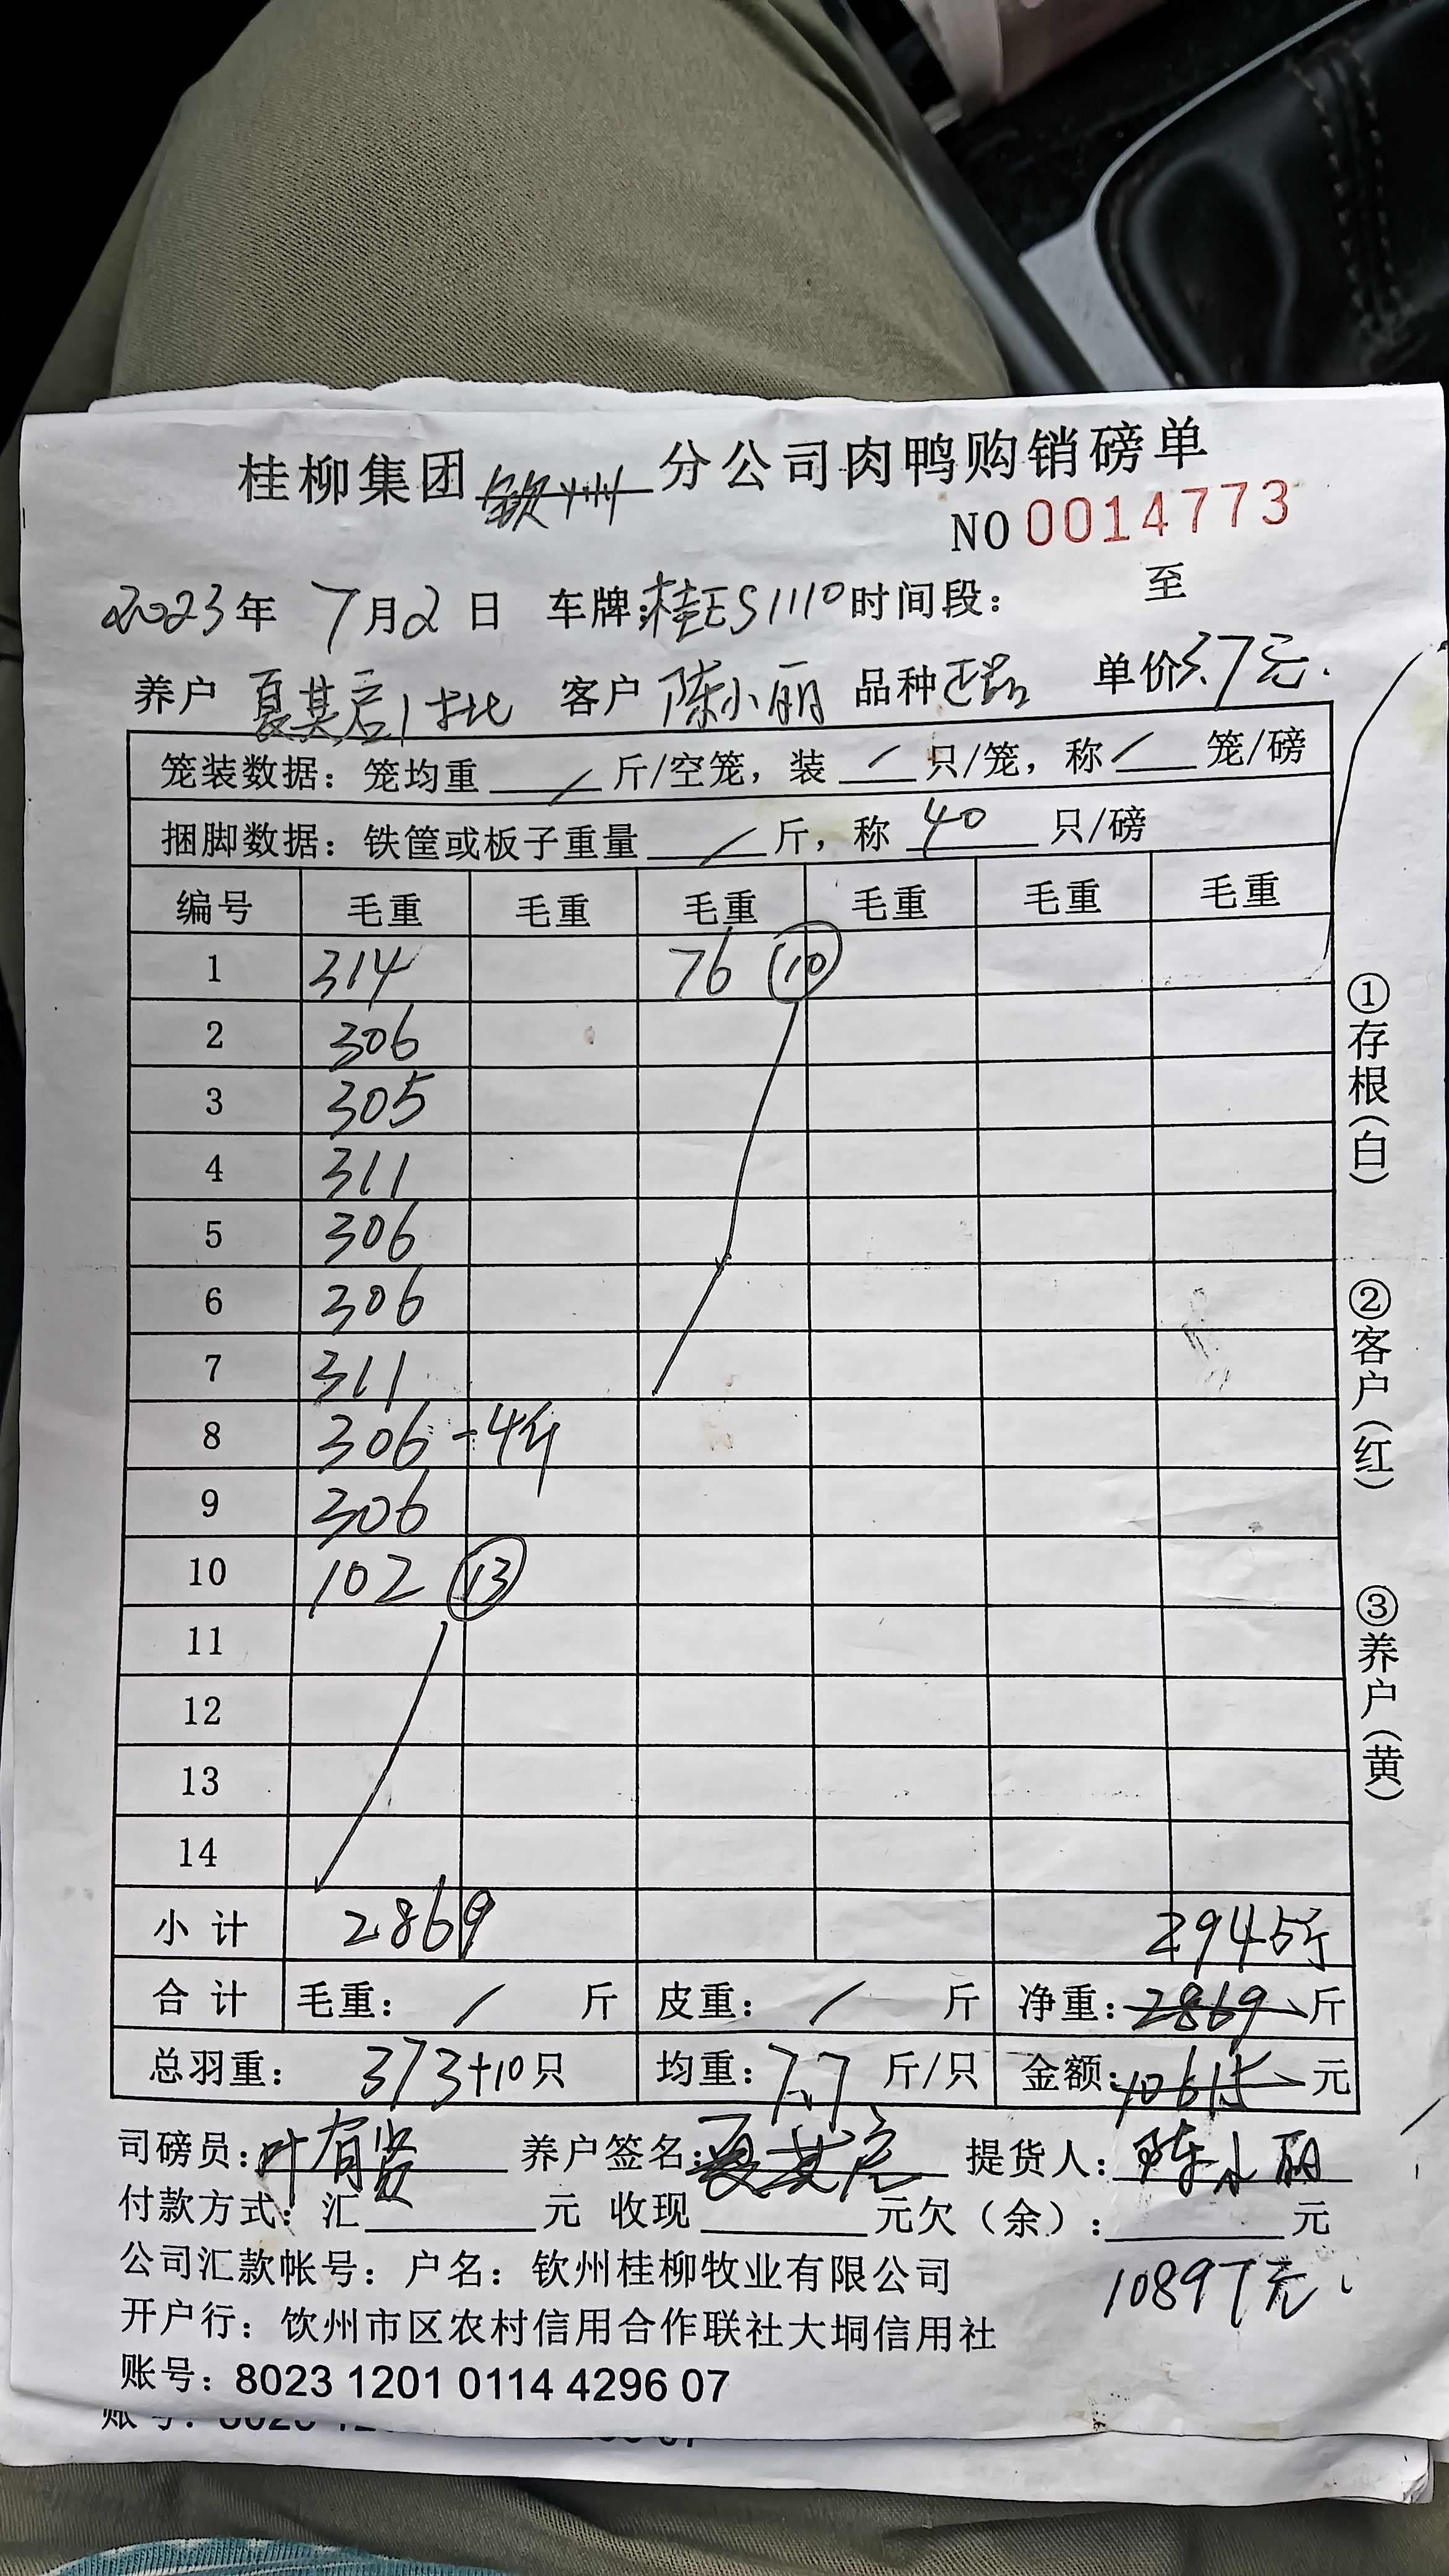 桂柳集团钦州分公司肉鸭购销磅单
NO 0014773
2023年 7月2日 车牌:桂ES1110时间段: 至
养户 夏其启1批 客户 陈小丽 品种 单价3.7元.
笼装数据: 笼均重 / 斤/空笼, 装 / 只/笼, 称 / 笼/磅
捆脚数据: 铁筐或板子重量 / 斤, 称 40 只/磅
编号 毛重 毛重 毛重 毛重 毛重 毛重
1 314 76 ⑩
2 306
3 305
4 311
5 306
6 306
7 311
8 306 -4斤
9 306
10 102 ⑬
11
12
13
14
小计 2869 2945斤
合计 毛重: / 斤 皮重: / 斤 净重: 2869 斤
总羽重: 373+10只 均重: 7.7 斤/只 金额: 10615 元
司磅员:叶有贤 养户签名:夏其启 提货人:陈小丽
付款方式: 汇 元 收现 元欠(余): 元
公司汇款帐号: 户名: 钦州桂柳牧业有限公司
10897元
开户行: 钦州市区农村信用合作联社大垌信用社
账号: 8023 1201 0114 4296 07
①存根(白)
②客户(红)
③养户(黄)